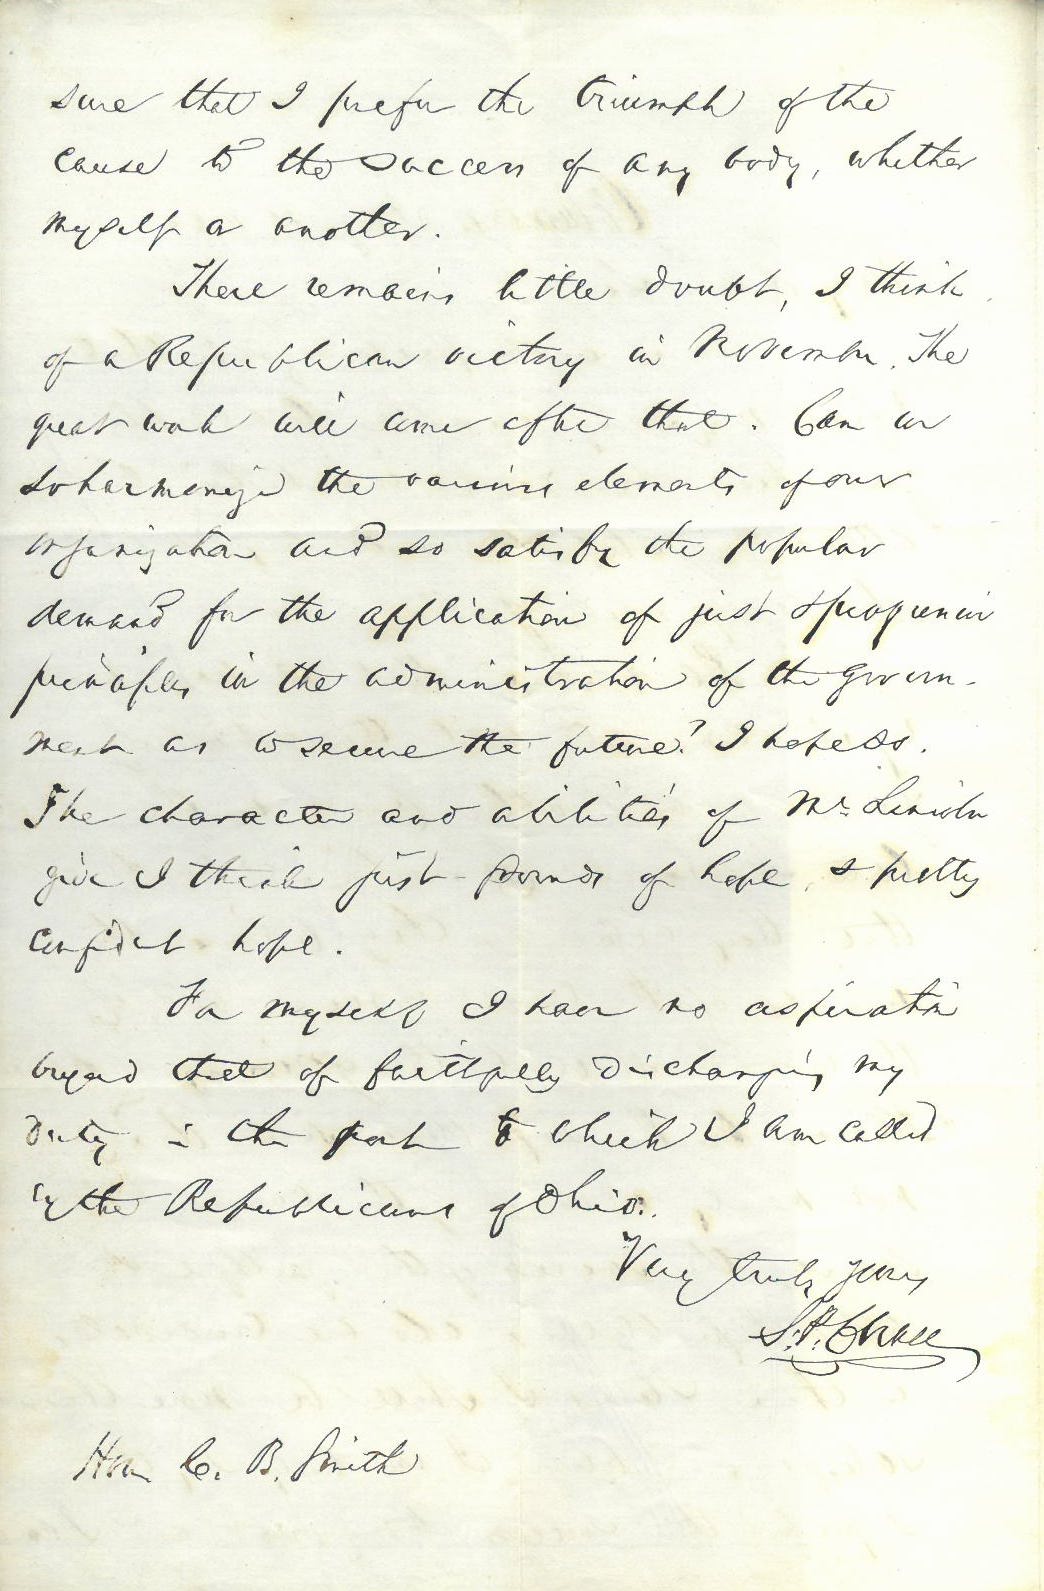 sure that I prefer the triumph of the
cause to the success of any body, whether
myself or another.
There remains little doubt, I think
of a Republican victory in November. The
great work will come after that. Can we
so harmonize the various elements of our
organization and so satisfy the popular
demand for the application of just &
principles in the administration of the govern-
ment as to secure the future? I hope so.
The character and abilities of Mr. Lincoln
give I think just grounds of hope, & pretty
confident hope.
For myself I have no aspiration
beyond that of faithfully discharging my
duty in the post to which I am called
by the Republicans of Ohio.
Very truly yours
S.P. Chase
Hon C. B. Smith